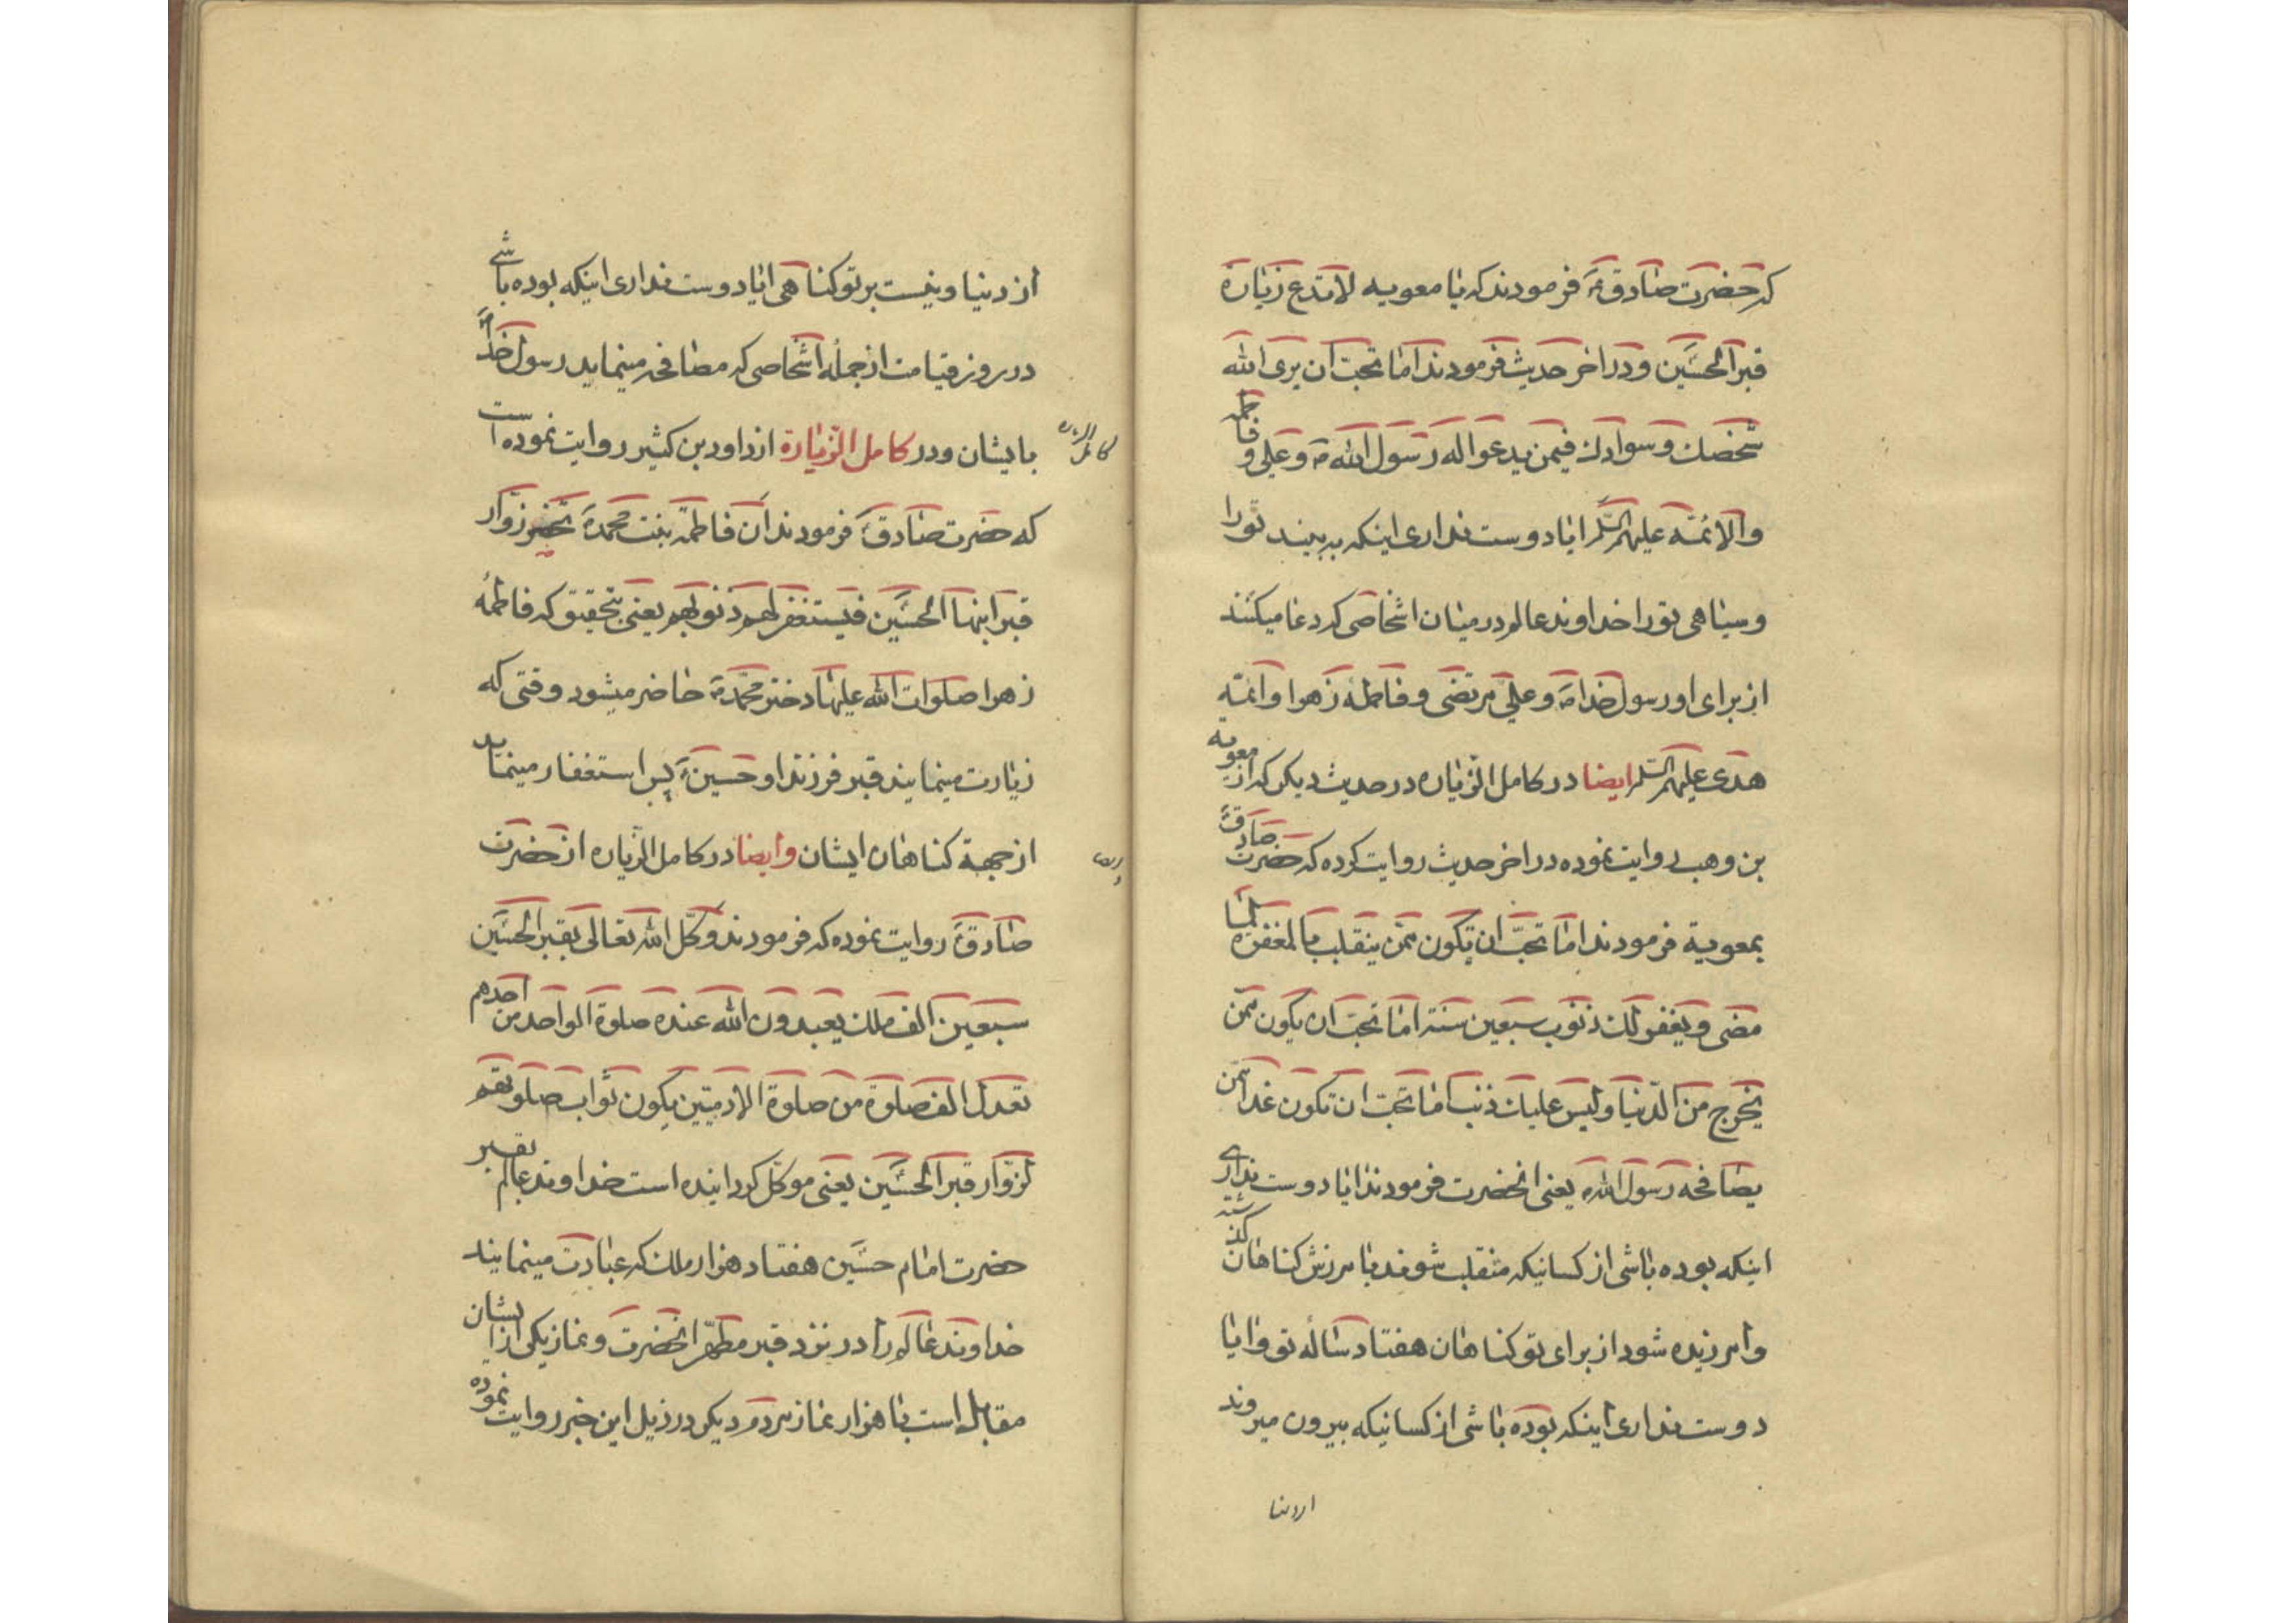 که حضرت صادق ع فرمودند که یا معویه لا تدع زیارة
قبر الحسین و در اخر حدیث فرمودند اما تحب ان یری الله
شخصك و سوادك فیمن یدعو له رسول الله ص و علی و فاطمه
و الائمه علیهم السلم ایا دوست نداری اینکه به بیند تو را
و سیاهی تو را خداوند عالم در میان اشخاصی که دعا میکنند
از برای او رسول خدا ص و علی مرتضی و فاطمهٔ زهرا و ائمه
هدی علیهم السلم ایضا در کامل الزیاره در حدیث دیکر که از معویه
بن وهب روایت نموده در اخر حدیث روایت کرده که حضرت صادق ع
بمعویة فرمودند اما تحبّ ان تکون ممّن ینقلب بالمغفرة لما
مضی و یغفر لك ذنوب سبعین سنة اما تحبّ ان یکون ممّن
یخرج من الدّنیا و لیس علیك ذنب اما تحبّ ان تکون غدا ممّن
یصافحه رسول الله ص یعنی انحضرت فرمودند ایا دوست نداری
اینکه بوده باشی از کسانیکه منقلب شوند بامرزش کناهان کذشته
و امرزیده شود از برای تو کناهان هفتاد سالهٔ تو و ایا
دوست نداری اینکه بوده باشی از کسانیکه بیرون میروند
از دنیا
از دنیا و نیست بر تو کناهی ایا دوست نداری اینکه بوده باشی
در روز قیامت از جملهٔ اشخاصی که مصافحه مینماید رسول خدا ص
بایشان و در کامل الزیارة از داود بن کثیر روایت نموده است
کامل الزیاره
که حضرت صادق ع فرمودند ان فاطمة بنت محمد ص تحضر زوّار
قبر ابنها الحسین فیستغفر لهم ذنوبهم یعنی بتحقیق که فاطمهٔ
زهرا صلوات الله علیها دختر محمّد ص حاضر میشود وقتی که
زیارت مینمایند قبر فرزند او حسین ع پس استغفار مینماید
از جهة کناهان ایشان و ایضا در کامل الزیاره از حضرت
و ایضا
صادق ع روایت نموده که فرمودند و کّل الله تعالی بقبر الحسین
سبعین الف ملك یعبدون الله عنده صلوة الواحد من احدهم
تعدل الف صلوة من صلوة الادمیّین یکون ثواب صلوتهم
لزوّار قبر الحسین یعنی موکّل کردانیده است خداوند عالم بقبر
حضرت امام حسین هفتاد هزار ملك که عبادت مینمایند
خداوند عالم را در نزد قبر مطهّر انحضرت و نماز یکی از ایشان
مقابل است با هزار نماز مردم دیکر در ذیل این خبر روایت نموده